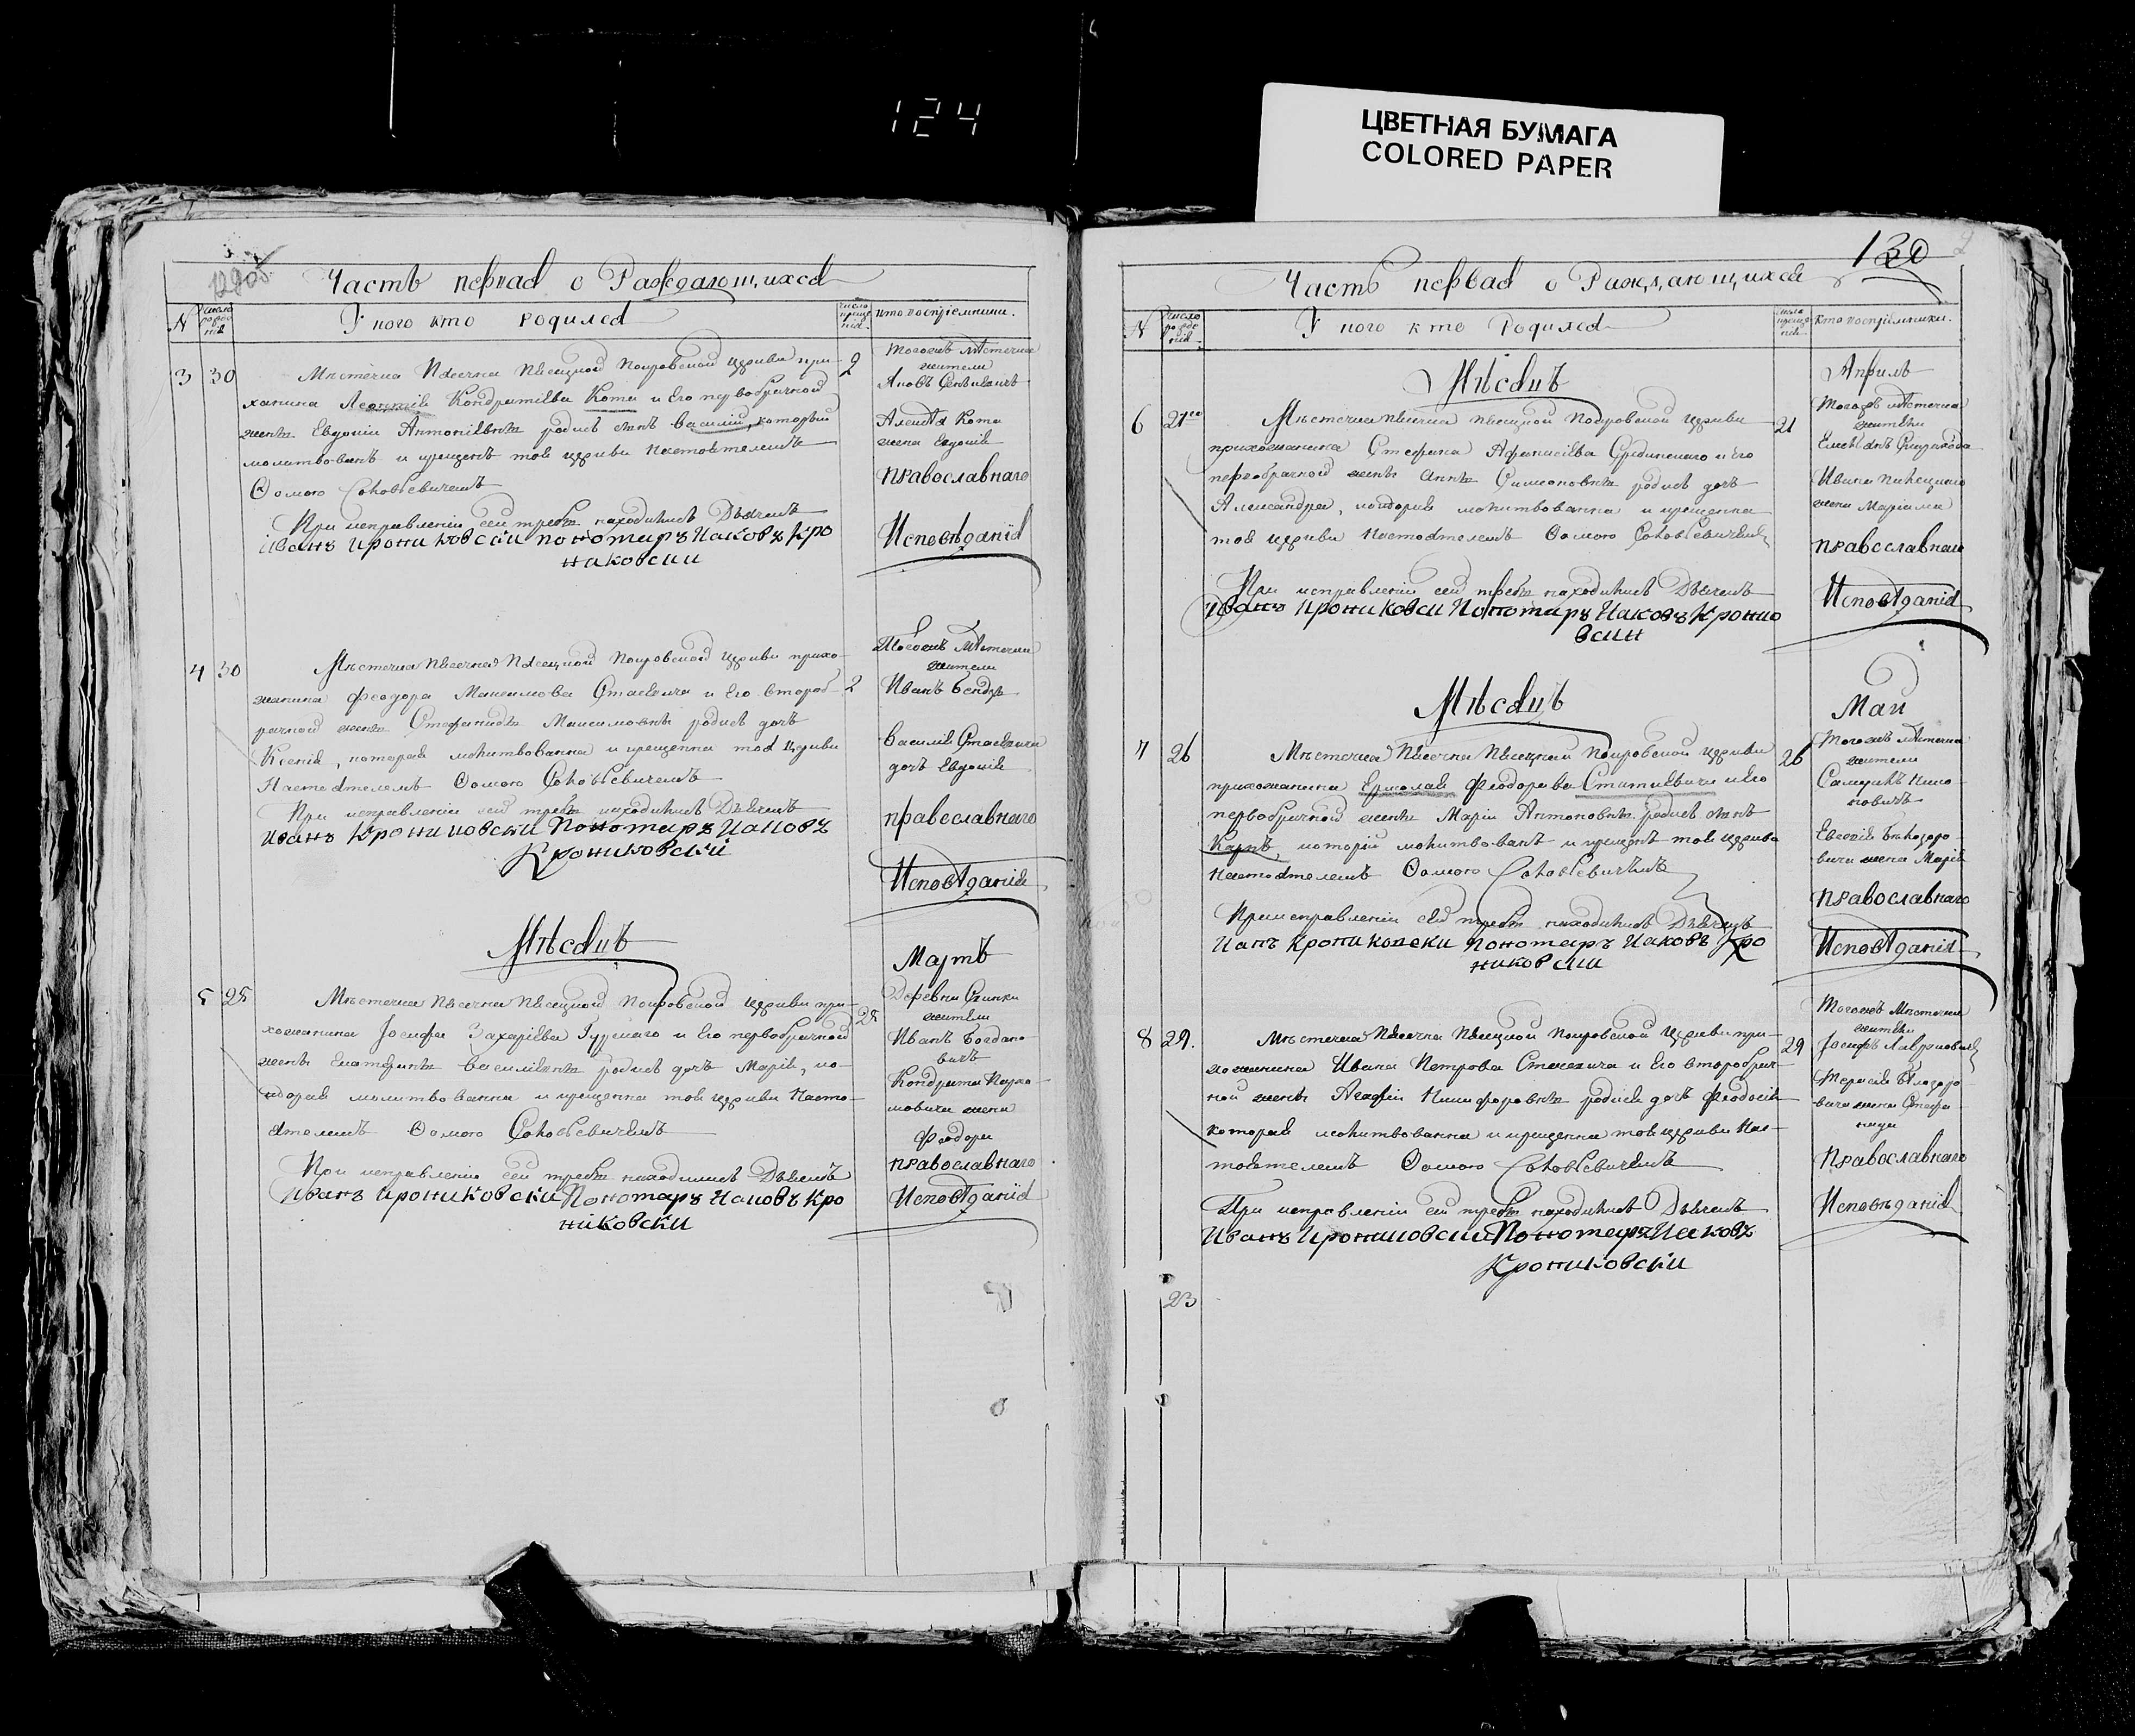 124
ЦВЕТНАЯ БУМАГА
COLORED PAPER
Часть первая о Раждающихся
№
Число рожденія
У кого кто родился
Число крещенія
кто воспріемники.
3 30
Мѣстечка Пѣсечна Пѣсецкой Покровской церкви при-
2
хожанина Леонтія Кондратіева Кота и Его первобрачной
жены Евдокіи Антоніевны родися сынъ Василій, который
молитвованъ и крещенъ тоя церкви Настоятелемъ
Ѳомою Соловьевичемъ
При исправленіи сей требы находились Дьячекъ
Иванъ Крониковски пономаръ Иаковъ Кро
никовски
Тогожъ мѣстечка
жители
Алексѣя Кота
жена Евдокія
православнаго
Исповѣданія
4 30
Мѣстечка Пѣсечна Пѣсецкой Покровской церкви прихо-
2
жанина Феодора Максимова Стасевича и Его второб-
рачной жены Стефаниды Максимовны родися дочь
Ксенія, которая молитвованна и крещенна тоя церкви
Настоятелемъ Ѳомою Соловьевичемъ
При исправленіи сей требы находились Дьячекъ
Иванъ Крониковски Пономаръ Иаковъ
Крониковскій
Тогожъ мѣстечка
жители
Иванъ Бондарь
Василія Стасевича
дочь Евдокія
православнаго
Исповѣданія
Мѣсяцъ
Мартъ
5 25
Мѣстечка Пѣсечна Пѣсецкой Покровской церкви при-
25
хожанина Іосифа Захаріева Гуцкаго и Его первобрачной
жены Екатерины Василіевны родися дочь Марія, ко-
торая молитвованна и крещенна тоя церкви Насто-
ятелемъ Ѳомою Соловьевичемъ
При исправленіи сей требы находились Дьячекъ
Иванъ Крониковски Пономаръ Иаковъ Кро
никовски
Деревни
жители
Иванъ Богдано-
вичъ
Кондрата
жена
Феодора
православнаго
Исповѣданія
130
Часть первая о Раждающихся
№
Число рожденія
У кого кто Родился
Число крещенія
кто воспріемники.
Мѣсяцъ
Апрель
6 21го
Мѣстечка Пѣсечна Пѣсецкой Покровской церкви
21
прихожанина Стефана Афанасіева Срединскаго и Его
первобрачной жены Анны Симеоновны родися дочь
Александра, которая молитвованна и крещенна
тоя церкви Настоятелемъ Ѳомою Соловьевичемъ
При исправленіи сей требы находились Дьячекъ
Иванъ Крониковси Пономаръ Иаковъ Кронико
вски
Тогожъ мѣстечка
жители
Ивана Пѣсецкаго
жена Маріама
православнаго
Исповѣданія
Мѣсяцъ
Май
7 26
Мѣстечка Пѣсечна Пѣсецкой Покровской церкви
26
прихожанина Ермолая Феодорова Статкевича и Его
первобрачной жены Маріи Антоновны родися сынъ
Карпъ, которій молитвованъ и крещенъ тоя церкви
Настоятелемъ Ѳомою Соловьевичемъ
При исправленіи сей требы находились Дьячекъ
Ианъ Крониковски Пономаръ Иаковъ Кро
никовски
Тогожъ мѣстечка
жители
Евсевія Бѣлозоро-
вича жена Марія
православнаго
Исповѣданія
8 29.
Мѣстечка Пѣсечна Пѣсецкой Покровской церкви при-
29
хожанина Ивана Петрова Стасевича и Его второбрач-
ной жены Агафіи Никифоровны родися дочь Феодосія
которая молитвованна и крещенна тоя церкви Нас-
тоятелемъ Ѳомою Соловьевичемъ
При исправленіи сей требы находились Дьячекъ
Иванъ Крониковски Пономаръ Иаковъ
Крониковски
Тогожъ Мѣстечка
жители
Іосифъ Лавриновичъ
Герасія Бѣлозоро-
вича жена Стефа-
нида
Православнаго
Исповѣданія
23